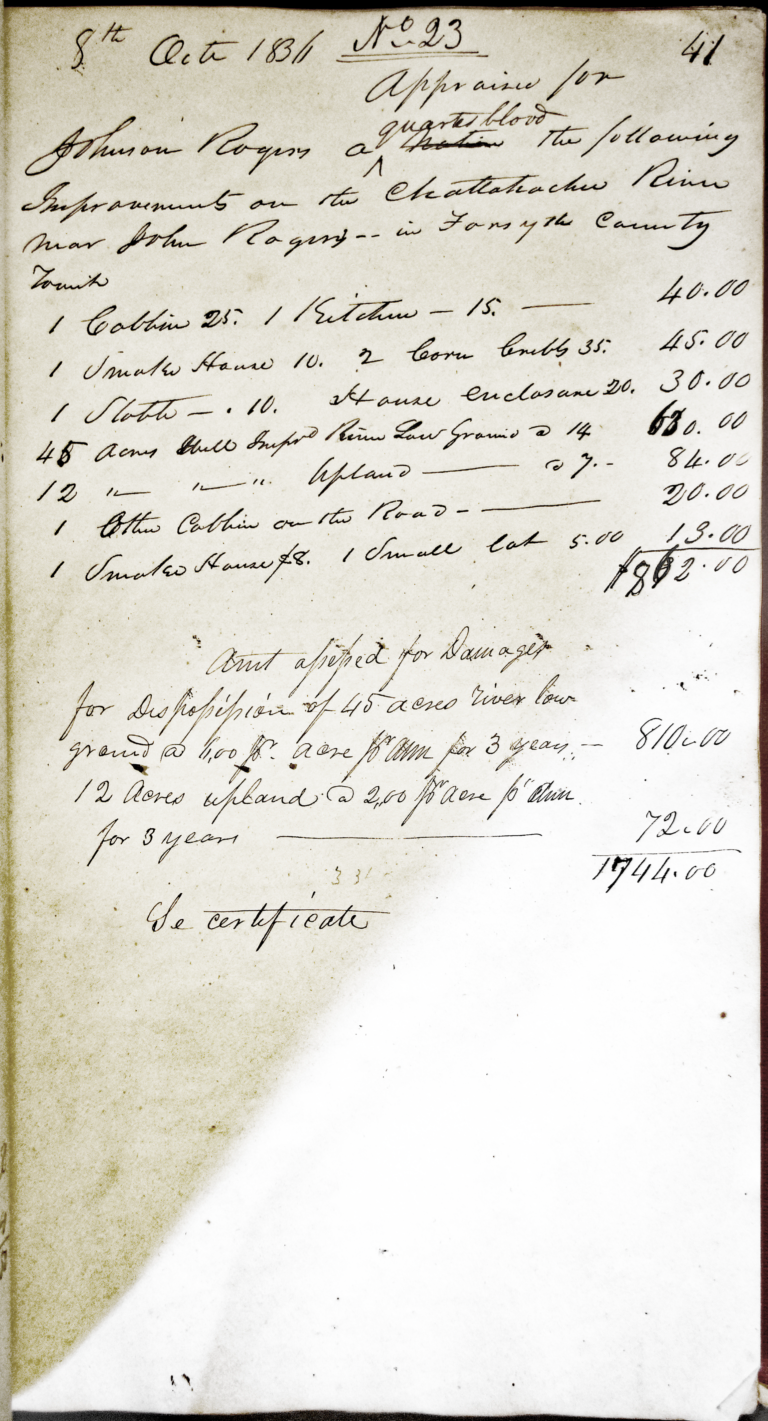 8th Octr 1836 No. 23 41
Appraised for
quarter blood
Johnson Rogers a native the following
Improvements on the Chattahoochee River
near John Rogers -- in Forsyth County
Towit
1 Cabbin 25. 1 Kitchen — 15. — 40.00
1 Smoke House 10. 2 Corn Cribbs 35. 45.00
1 Stable — . 10. House enclosure 20. 30.00
45 acres Well Impd River Low Ground @ 14 630.00
12 " " " Upland — @ 7.- 84.00
1 Other Cabbin on the Road - — 20.00
1 Smoke House $8. 1 Small lot 5.00 13.00
$862.00
Amt assessed for Damages
for Dispossession of 45 acres river low
ground @ 6,00 pr. acre pr Ann for 3 years. — 810.00
12 Acres upland @ 2,00 pr acre pr Ann
for 3 years — 72.00
1744.00
331
Se certificate